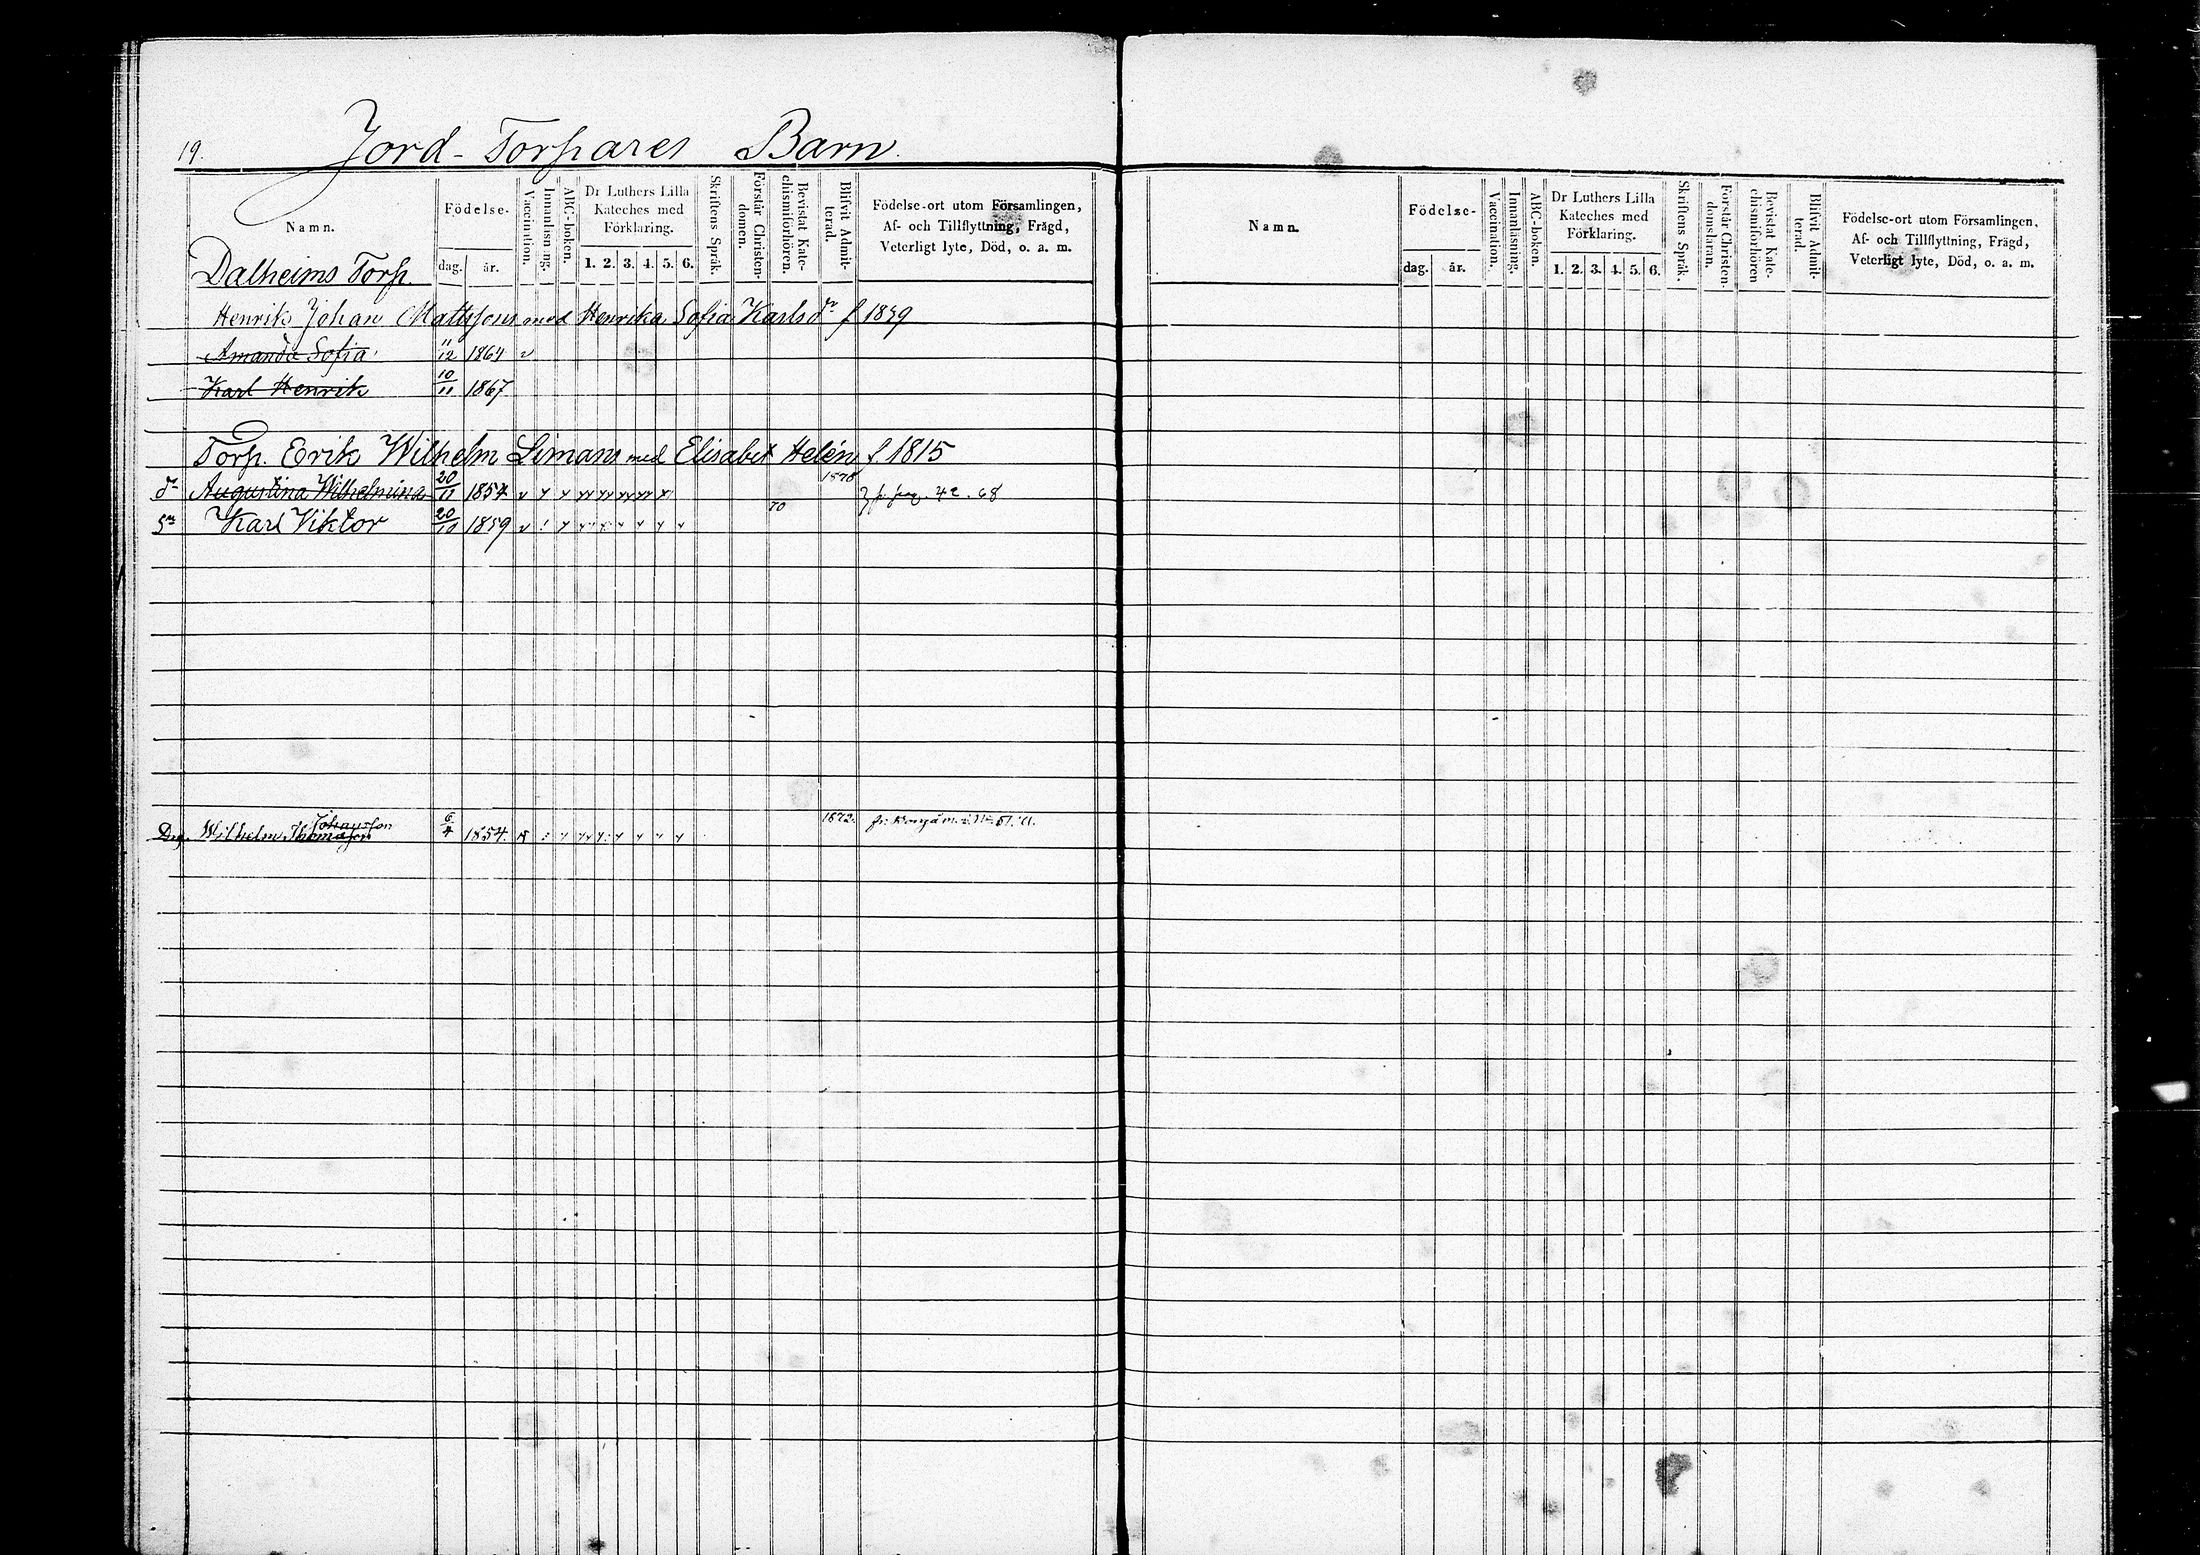 19. Jord-Torpares Barn.
Namn.
Födelse-
dag. år.
Vaccination.
Innanläsning.
ABC-boken.
Dr Luthers Lilla
Kateches med
Förklaring.
1. 2. 3. 4. 5. 6.
Skriftens Språk.
Förstår Christen-
domen.
Bevistat Kate-
chismiförhören.
Blifvit Admit-
terad.
Födelse-ort utom Församlingen,
Af- och Tillflyttning, Frägd,
Veterligt lyte, Död, o. a. m.
Dalheims Torp.
Henrik Johan Mattssons med Henrika Sofia Karlsdr f 1839
Amanda Sofia 11/12 1864 v
Karl Henrik 10/11 1867
Torp. Erik Wilhelm Limans med Elisabet Helén f. 1815
dr Augustina Wilhelmina 20/11 1854 1870 pag. 42. 68
Sn Karl Viktor 20/10 1859 70
Drg. Wilhelm Thomasson Johansson 6/4 1854 1872.
Namn.
Födelse-
dag. år.
Vaccination.
Innanläsning.
ABC-boken.
Dr Luthers Lilla
Kateches med
Förklaring.
1. 2. 3. 4. 5. 6.
Skriftens Språk.
Förstår Christen-
domsläran.
Bevistat Kate-
chismiförhören
Blifvit Admit-
terad.
Födelse-ort utom Församlingen,
Af- och Tillflyttning, Frägd,
Veterligt lyte, Död, o. a. m.